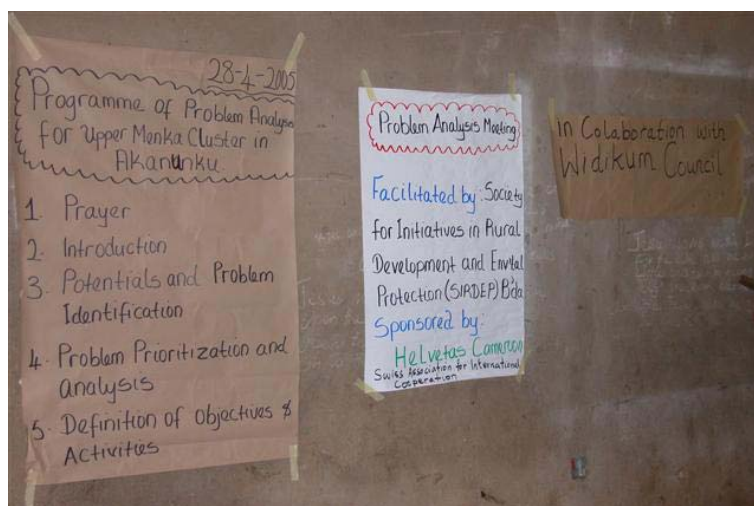 28-4-2005
Programme of Problem Analysis
for Upper Menka Cluster in
Akanunku.
1. Prayer
2. Introduction
3. Potentials and Problem
Identification
4. Problem Prioritization and
analysis
5. Definition of Objectives &
Activities
Problem Analysis Meeting
Facilitated by: Society
for Initiatives in Rural
Development and Envtal
Protection (SIRDEP) B'da
Sponsored by:
Helvetas Cameroon
Swiss Association for International
Cooperation
in Colaboration with
Widikum Council